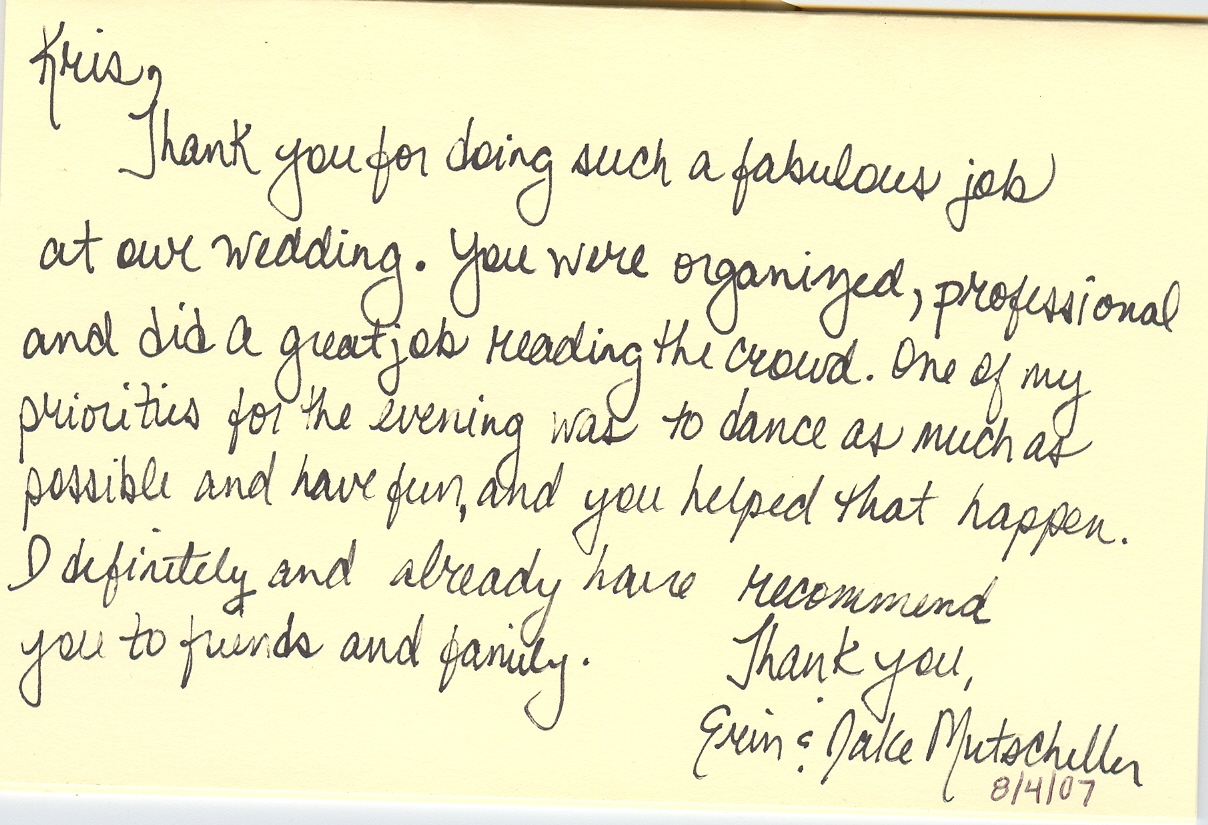 Kris,
Thank you for doing such a fabulous job
at our wedding. You were organized, professional
and did a great job reading the crowd. One of my
priorities for the evening was to dance as much as
possible and have fun, and you helped that happen.
I definitely and already have recommend
you to friends and family.
Thank you,
Erin & Jake Mutscheller
8/4/07